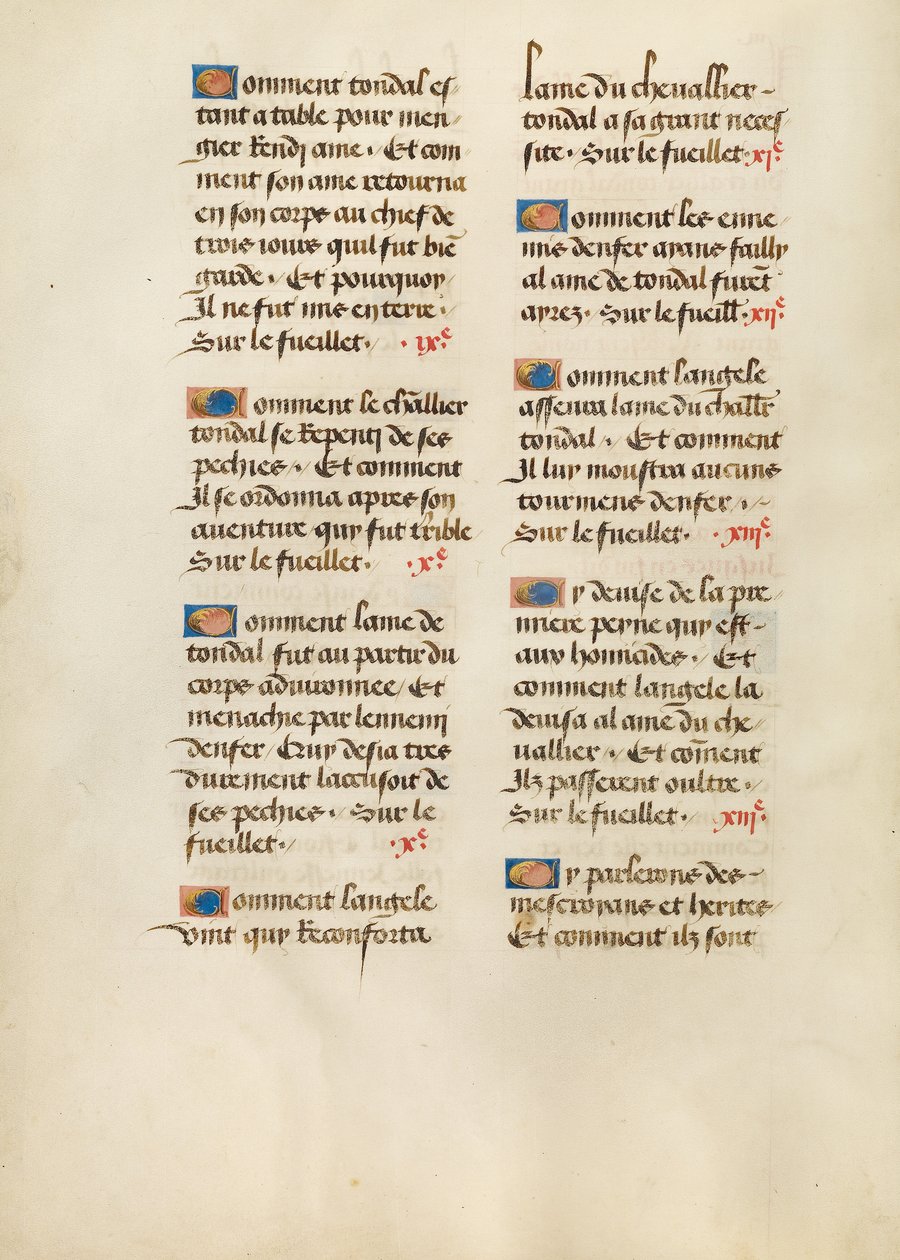 Comment tondal es⸗
tant a table pour men⸗
gier Rendi ame · Et com
ment son ame retourna
en son corps au chief de
trois iours quil fut biē
garde · Et pourquoy
Il ne fut mis en terre ·
Sur le fueillet · · ixᵉ
Comment le cħallier
tondal se Repenti de ses
pechies · Et comment
Il se ordonna apres son
auenture quy fut trible
Sur le fueillet · · xᵉ
Comment lame de
tondal fut au partir du
corps aduironnee / Et
menachie par lennemi
denfer / Quy desia tres
durement laccusoit de
ses pechies · Sur le
fueillet · · xᵉ
Comment langele
vint quy Reconforta
lame du cheuallier
tondal a sa grant neces⸗
site · Sur le fueillet · xiᵉ
Comment les enne⸗
mis denfer ayans failly
al ame de tondal furēt
ayrez · Sur le fueill̄t · xijᵉ
Comment langele
asseura lame du challr̄
tondal · Et comment
Il luy moustra aucuns
tourmens denfer ·
Sur le fueillet · · xiijᵉ
Cy deuise de la pre⸗
miere peyne quy est
aux homicides · Et
comment langele la
deuisa al ame du che⸗
uallier · Et com̄ent
Ilz passerent oultre ·
Sur le fueillet · xiiijᵉ
Cy parlerons des
mescroyans et herites
Et comment ilz sont